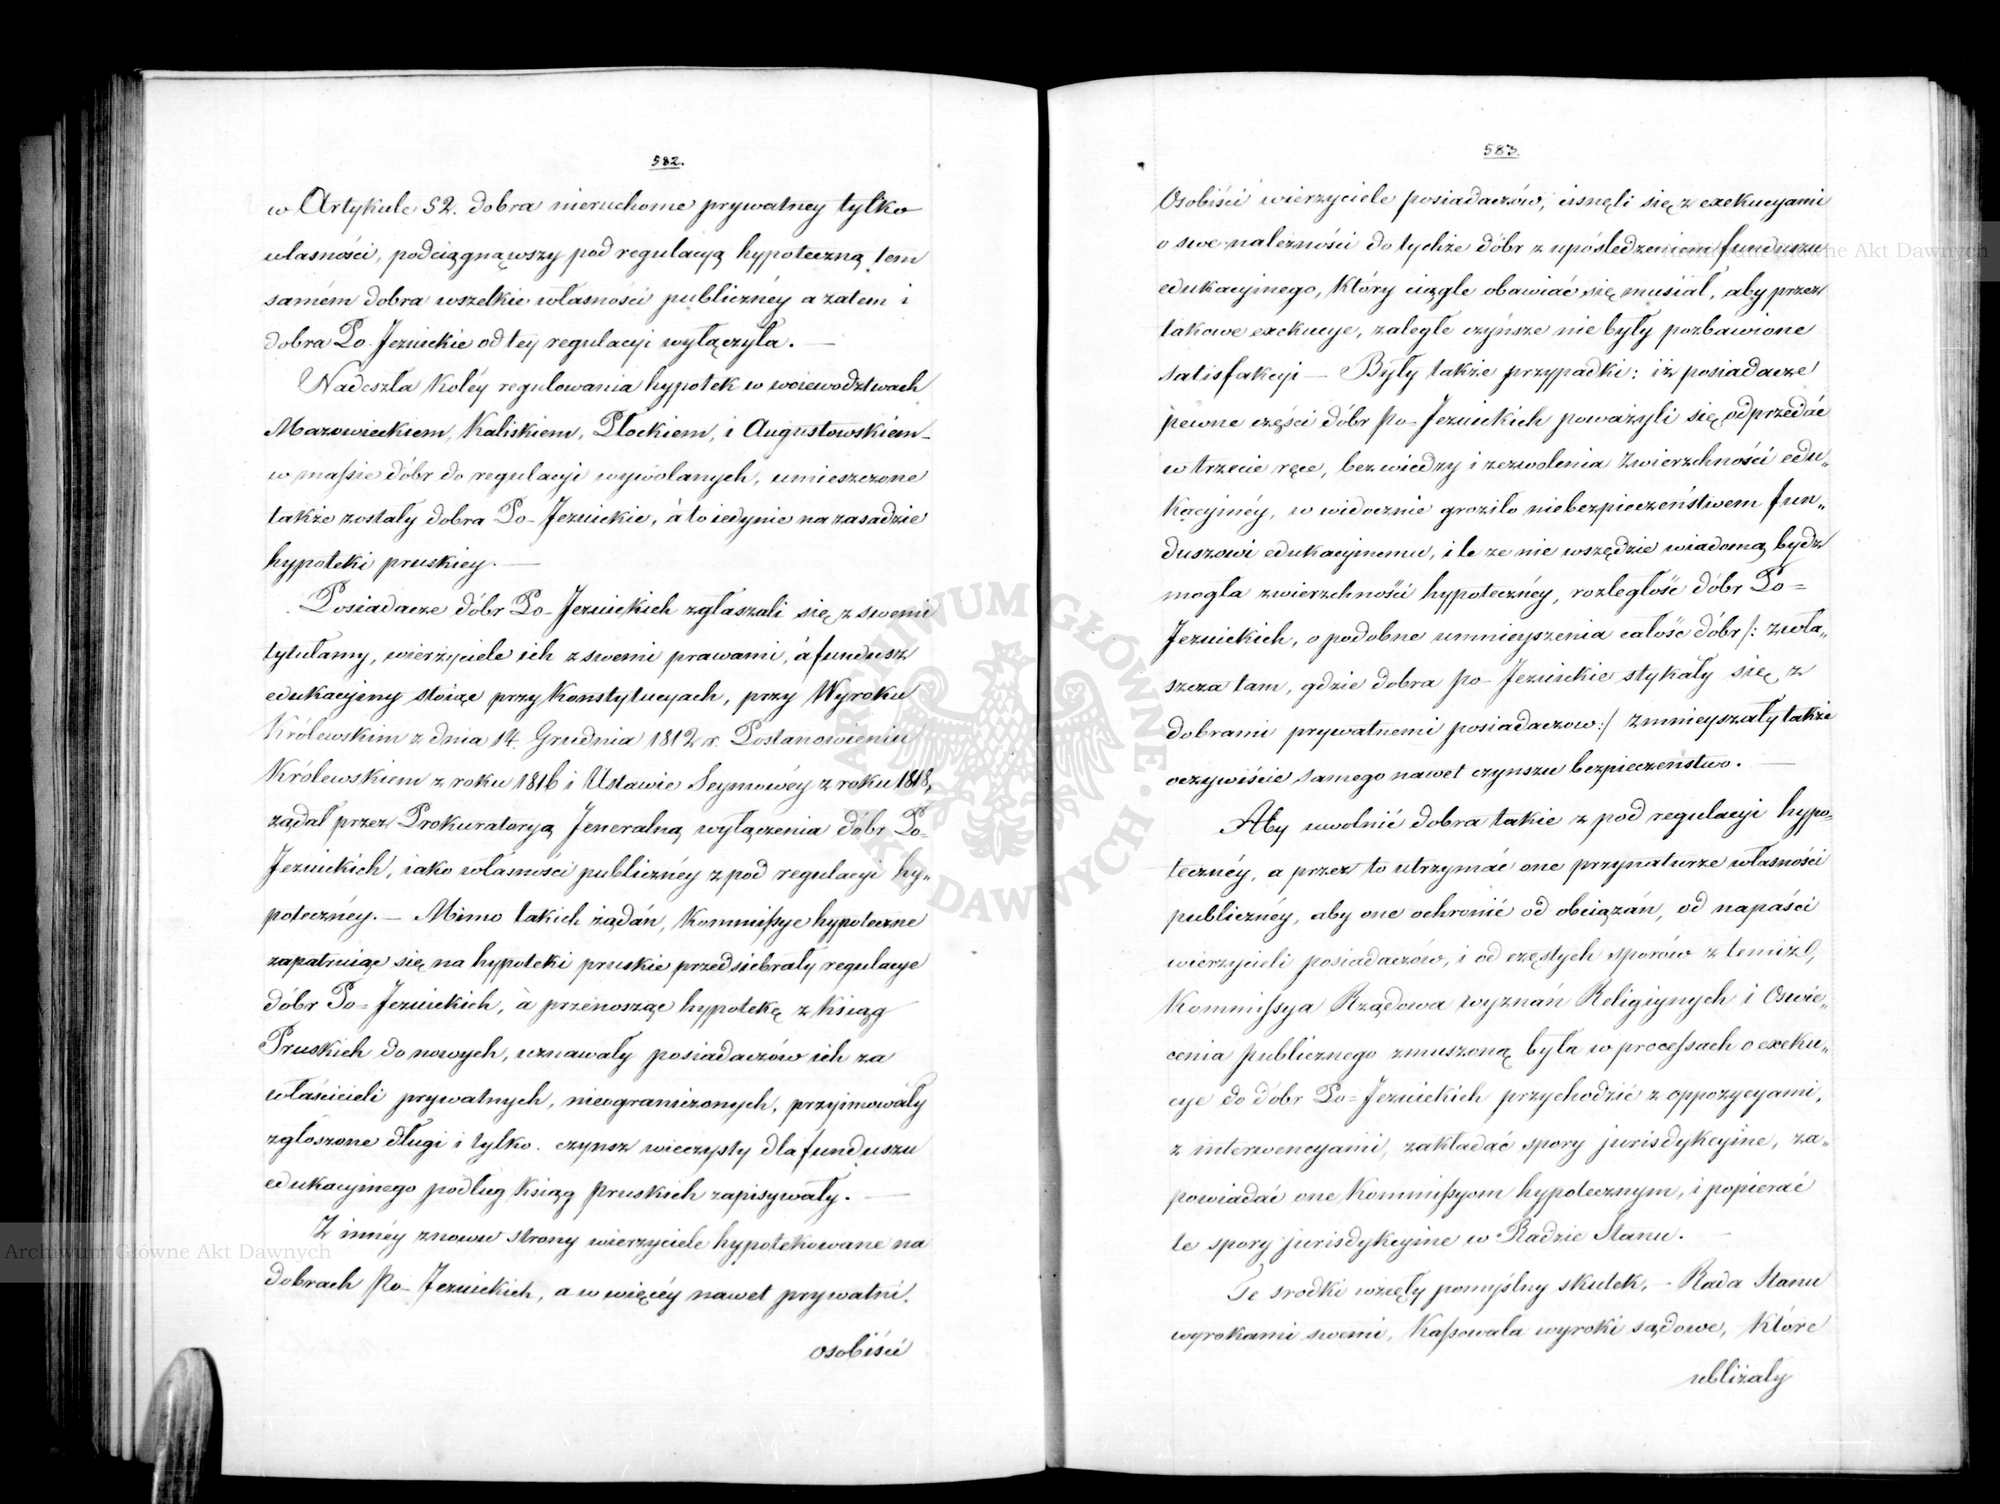 582.
w Artykule 52. dobra nieruchome prywatney tylko
własności, podciągnąwszy pod regulacyą hypoteczną tem
samém dobra wszelkie własności publicznéy a zatem i
dobra Po-Jezuickie od tey regulacyi wyłączyła. —
Nadeszła koléy regulowania hypotek w woiewodztwach
Mazowieckiem, Kaliskiem, Płockiem, i Augustowskiem –
w massie dóbr do regulacyi wywołanych, umieszczone
także zostały dobra Po-Jezuickie, à to iedynie na zasadzie
hypoteki pruskiey. —
Posiadacze dóbr Po-Jezuickich zgłaszali się z swemi
tytułamy, wierzyciele ich z swemi prawami, à fundusz
edukacyiny stoiąc przy Konstytucyach, przy Wyroku
Królewskim z dnia 14. Grudnia 1812 r. Postanowieniu
Królewskiem z roku 1816 i Ustawie Seymowéy z roku 1818,
ządał przez Prokuratoryą Jeneralną wyłączenia dóbr Po-
Jezuickich, iako własności publicznéy z pod regulacyi hy„
potecznéy. – Mimo takich żądań, Kommissye hypoteczne
zapatruiąc się na hypoteki pruskie przedsiebrały regulacye
dóbr Po=Jezuickich, à przenosząc hypotekę z Ksiąg
Pruskich do nowych, uznawały posiadaczów ich za
właścicieli prywatnych, nieograniczonych, przyimowały
zgłoszone długi i tylko czynsz wieczysty dla funduszu
edukacyinego podług Ksiąg Pruskich zapisywały. —
Z innéy znowu strony wierzyciele hypotekowane na
dobrach Po-Jezuickich, a w więcéy nawet prywatni.
osobiści
583.
Osobiści wierzyciele posiadaczów, cisnęli się z exekucyami
o swe należności do tychże dóbr z upośledzeniem funduszu
edukacyinego, który ciągle obawiać się musiał, aby przez
takowe exekucye, zaległe czyńsze nie były pozbawione
satisfakcyi – Były także przypadki: iż posiadacze
pewne części dóbr Po-Jezuickich poważyli się odprzedać
w trzecie ręce, bez wiedzy i zezwolenia Zwierzchności edu„
kacyinéy, w widocznie groziło niebezpieczeństwem fun„
duszowi edukacyinemu, ile ze nie wszędzie wiadomą bydz
mogła zwierzchności hypotecznéy, rozległość dóbr Po=
Jezuickich, o podobne umnieyszenia całość dóbr /: zwła„
szcza tam, gdzie dobra po-Jezuickie stykały się z
dobrami prywatnemi posiadaczow :/ zmnieyszały także
oczywiście samego nawet czynszu bezpieczeństwo. —
Aby uwolnić dobra takie z pod regulacyi hypo„
tecznéy, a przez to utrzymać one przy naturze własności
publicznéy, aby one ochronić od obciązań, od napaści
wierzycieli posiadaczów, i od częstych sporów z temiż,
Kommissya Rządowa wyznań Religiynych i Oswie„
cenia publicznego zmuszoną była w processach o exeku„
cye do dóbr Po=Jezuickich przychodzić z oppozycyami,
z interwencyami, zakładać spory jurisdykcyine, za„
powiadać one Kommissyom hypotecznym, i popierać
te spory jurisdykcyine w Radzie Stanu. —
Te srodki wzięły pomyślny skutek. – Rada Stanu
wyrokami swemi, kassowała wyroki sądowe, które
ubliżały
Archiwum Główne Akt Dawnych
Archiwum Główne Akt Dawnych
ARCHIWUM GŁÓWNE AKT DAWNYCH